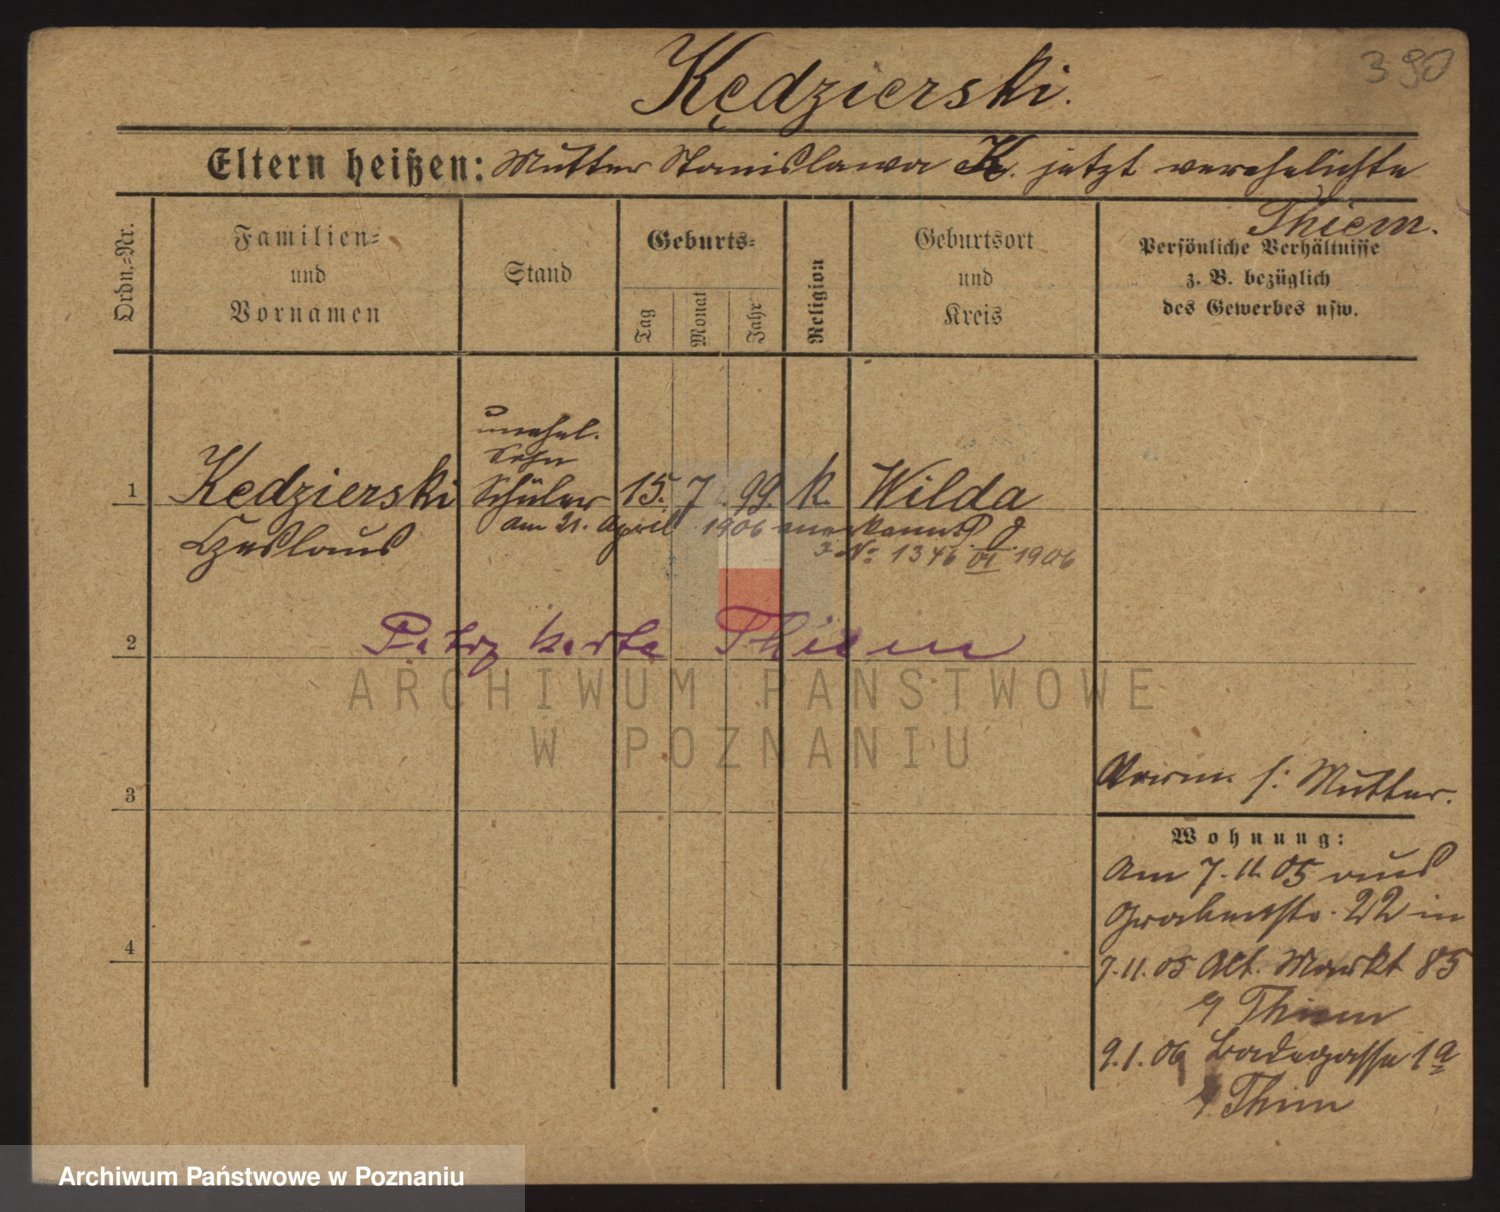 390
Kędzierski.
Eltern heißen: Mutter Stanislawa K. jetzt verehelichte
Thiem.
Ordn.-Nr.
Familien-
und
Vornamen
Stand
Geburts-
Tag
Monat
Jahr
Religion
Geburtsort
und
Kreis
Persönliche Verhältnisse
z. B. bezüglich
des Gewerbes usw.
unehel.
Sohn
1 Kedzierski Schüler 15. 7. 99. k. Wilda
Czeslaus
am 21. April 1906 anerkannt
J. No 1346 VI 1906
2
Patrz karta Thiem
ARCHIWUM PAŃSTWOWE
W POZNANIU
3
s: Mutter.
Wohnung:
Am 7.11.05 aus
Grabenstr. 22 in
7.11.05 Alt. Markt 85
b/ Thiem
9.1.06 Badegasse 1a
b/ Thiem
4
Archiwum Państwowe w Poznaniu